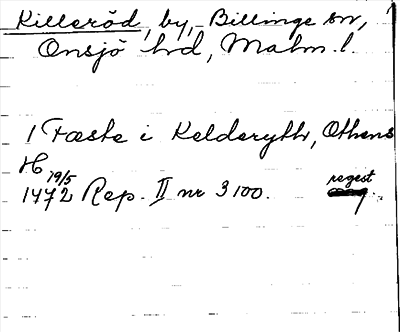 Killeröd, by, Billinge sn,
Onsjö hrd, Malm. l.
1 Fæste i Kelderyth, Othens
H 19/5
1472 Rep. II nr 3100. regest